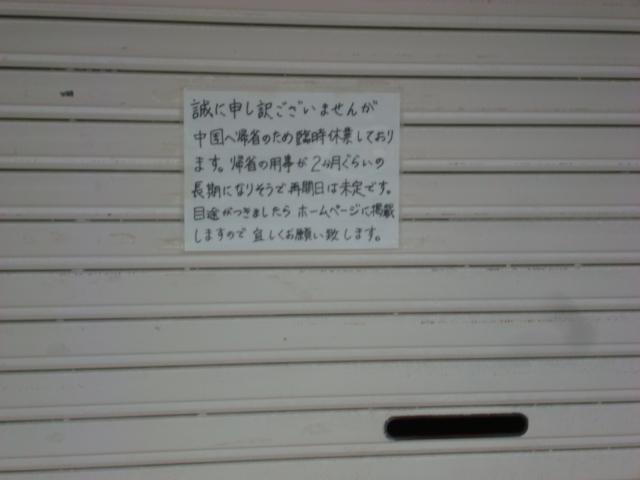 誠に申し訳ございませんが
中国へ帰省のため臨時休業しており
ます。帰省の用事が2ヶ月ぐらいの
長期になりそうで再開日は未定です。
目途がつきましたら ホームページに掲載
しますので 宜しくお願い致します。